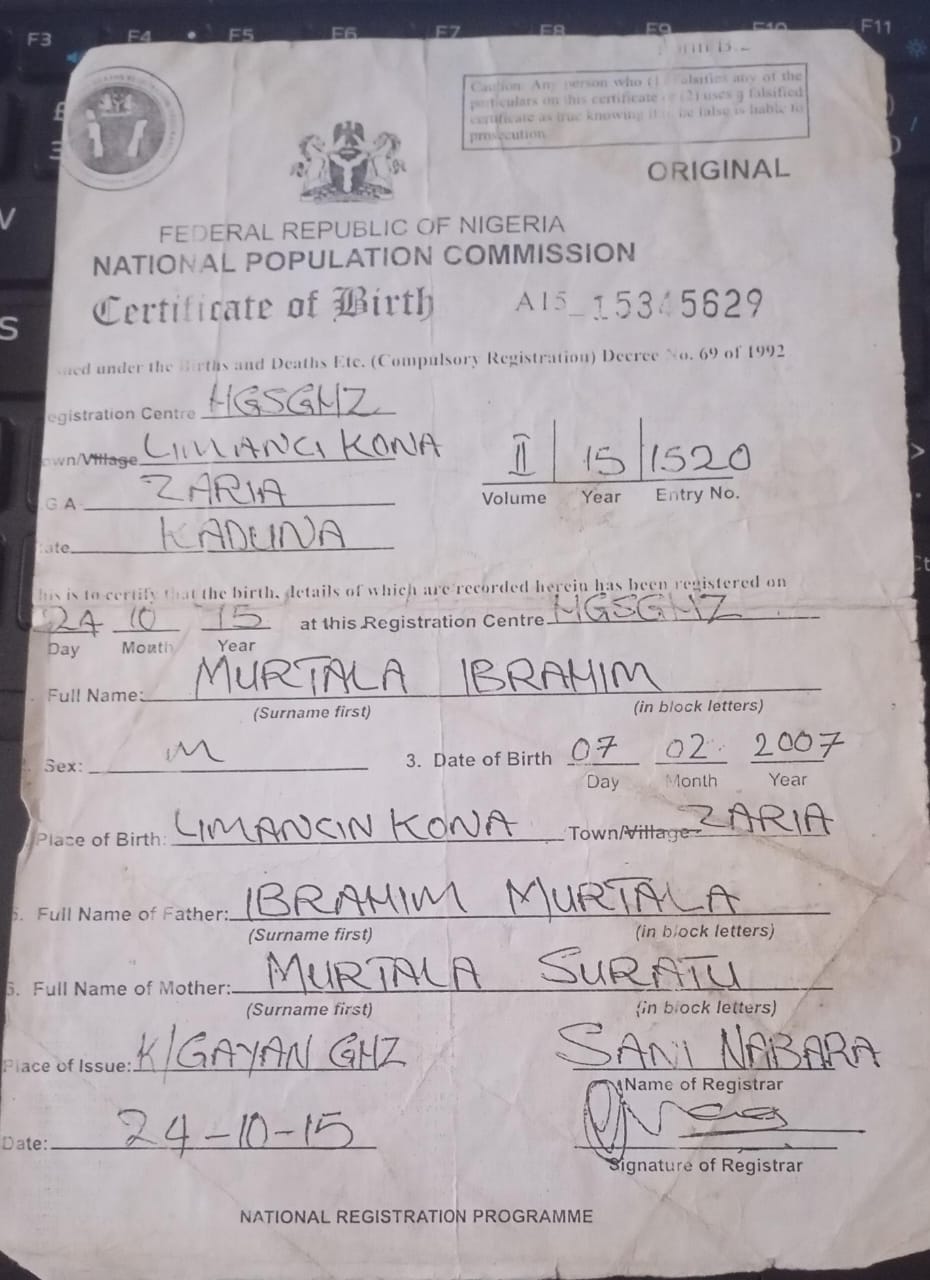 F3 F4 F5 F6 F7 F8 F9 F10 F11
Caution: Any person who (1) falsifies any of the
particulars on this certificate or (2) uses a falsified
certificate as true knowing it to be false is liable to
prosecution
ORIGINAL
FEDERAL REPUBLIC OF NIGERIA
NATIONAL POPULATION COMMISSION
Certificate of Birth A15_15345629
under the Births and Deaths Etc. (Compulsory Registration) Decree No. 69 of 1992
egistration Centre HGSGHZ
own/Village LIMANCI KONA
II 15 1520
G A ZARIA
Volume Year Entry No.
ate KADUNA
his is to certify that the birth, details of which are recorded herein has been registered on
24 10 15 at this Registration Centre HGSGHZ
Day Month Year
Full Name: MURTALA IBRAHIM
(Surname first) (in block letters)
Sex: M 3. Date of Birth 07 02 2007
Day Month Year
Place of Birth: LIMANCIN KONA Town/Village ZARIA
5. Full Name of Father: IBRAHIM MURTALA
(Surname first) (in block letters)
6. Full Name of Mother: MURTALA SURATU
(Surname first) (in block letters)
Place of Issue: K/GAYAN GHZ SANI NABARA
Name of Registrar
Date: 24-10-15
Signature of Registrar
NATIONAL REGISTRATION PROGRAMME